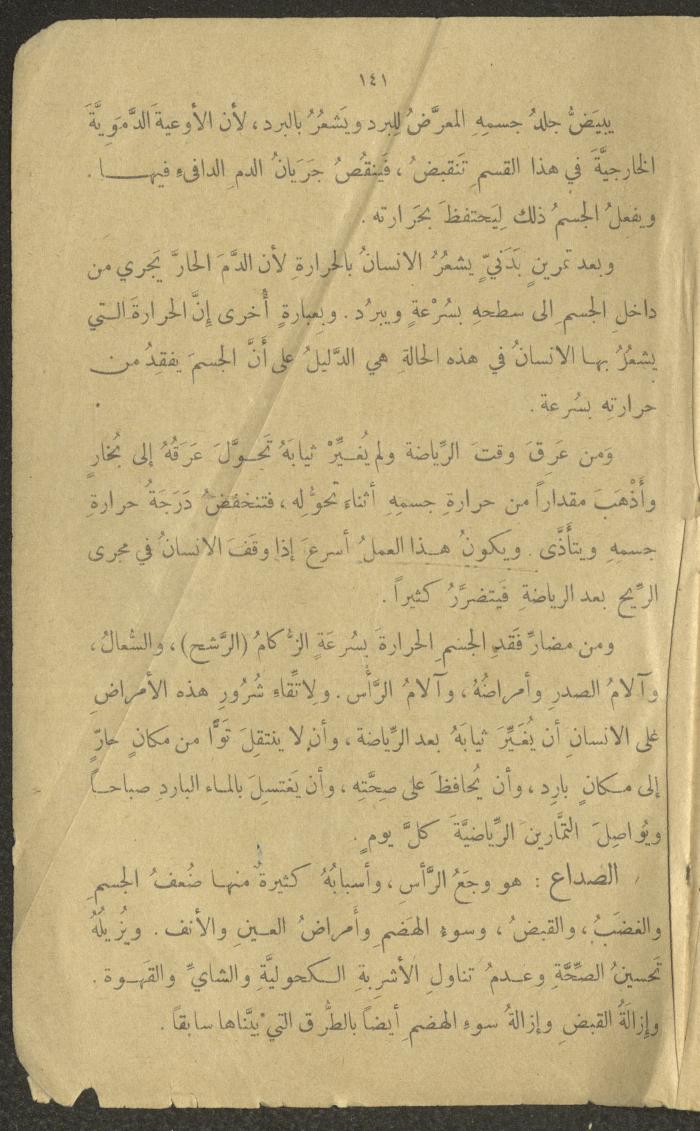 ١٤١
يبيَضُّ جلدُ جسمِهِ المعرَّضُ لِلبرد ويَشعُرُ بالبرد، لأن الأوعيةَ الدَّمَوِيَّةَ
الخارجيَّةَ في هذا القسمِ تَنقبضُ، فيَنقُصُ جَرَيَانُ الدمِ الدافىءِ فيهـــا .
ويفعلُ الجسمُ ذلك لِيَحتفظَ بحَرَارته .
وبعد تمرينٍ بَدَنيٍّ يشعُرُ الانسانُ بالحرارةِ لأن الدَّمَ الحارَّ يَجري من
داخلِ الجسمِ الى سطحهِ بسُرْعةٍ ويبرُد . وبعبارةٍ أُخرى إنَّ الحرارةَ التي
يشعُرُ بها الانسانُ في هذه الحالةِ هي الدَّليلُ على أَنَّ الجسمَ يفقِدُ من
حرارتِه بسُرعة .
وَمن عَرِقَ وقتَ الرِّياضة ولم يُغيِّرْ ثيابَهُ تَحوَّلَ عَرَقُهُ إلى بُخارٍ
وأَذْهبَ مقداراً من حرارةِ جسمِهِ أثناء تحوُّلِه، فتنخفضُ دَرَجَةُ حرارةِ
جسمهِ ويتأَذَّى . ويكونُ هذا العملُ أسرعَ إذا وقَفَ الانسانُ في مجرى
الرِّيح بعد الرياضةِ فيَتضرَّرُ كثيراً .
ومن مضارِّ فَقدِ الجسمِ الحرارةَ بِسُرعَةٍ الزُّكامُ (الرَّشح)، والسُّعالُ،
وآلامُ الصدرِ وأمراضُهُ، وآلامُ الرَّأْس . ولاتِّقاءِ شُرُورِ هذه الأمراضِ
على الانسانِ أن يُغَيِّرَ ثيابَهُ بعد الرِّياضة، وأن لا ينتقِلَ تَوًّا من مكانٍ حارٍّ
إلى مكانٍ بارِد، وأن يُحافظَ على صِحَّتِه، وأن يَغتسِلَ بالماء البارد صباحاً
ويُواصِلَ التمَّارين الرِّياضيَّةَ كلَّ يومٍ .
الصداع : هو وجَعُ الرَّأس، وأسبابُهُ كثيرةٌ منها ضُعفُ الجسمِ
والغضَبُ، والقبضُ، وسوءُ الهَضمِ وأَمراضُ العينِ والأنف . ويُزيلُهُ
تَحسينُ الصِّحَّةِ وعدمُ تناولِ الأشرِبةِ الكحوليَّةِ والشايِّ والقَهوة .
وإِزالةُ القبضِ وإزالةُ سوءِ الهضمِ أيضاً بالطُّرقِ التي بيَّنَّاها سابقاً .